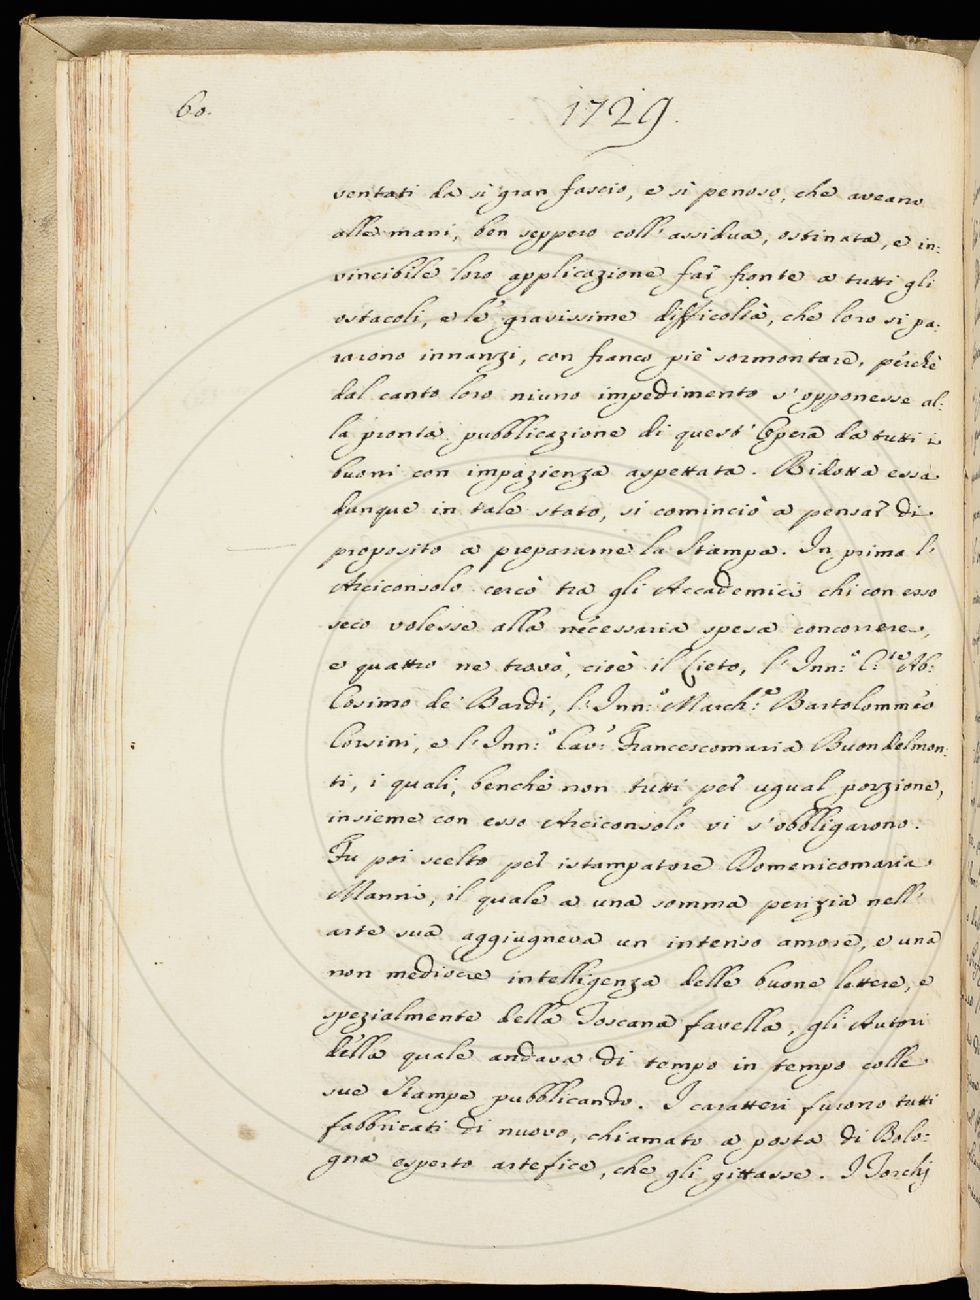 60.
1729.
ventati da sì gran fascio, e sì penoso, che aveano
alle mani, ben seppero coll' assidua, ostinata, e in:
vincibile loro applicazione far fronte a tutti gli
ostacoli, e le gravissime difficoltà, che loro si pa:
rarono innanzi, con franco piè sormontare, perchè
dal canto loro niuno impedimento s' opponesse al:
la pronta pubblicazione di quest' Opera da tutti i
buoni con impazienza aspettata. Ridotta essa
dunque in tale stato, si cominciò a pensar di
proposito a prepararne la Stampa. In prima l'
Arciconsolo cercò tra gli Accademici chi con esso
seco volesse alla necessaria spesa concorrere,
e quattro ne trovò, cioè il Lieto, l' Inn:º C:te Ab:
Cosimo de' Bardi, l' Inn:º March:e Bartolommeo
Corsini, e l' Inn:º Cav: Francescomaria Buondelmon:
ti, i quali, benchè non tutti per ugual porzione,
insieme con esso Arciconsolo vi s' obbligarono.
Fu poi scelto per istampatore Domenicomaria
Manni, il quale a una somma perizia nell'
arte sua aggiugneva un intenso amore, e una
non mediocre intelligenza delle buone lettere, e
spezialmente della Toscana favella, gli Autori
della quale andava di tempo in tempo colle
sue Stampe pubblicando. I caratteri furono tutti
fabbricati di nuovo, chiamato a posta di Bolo:
gna esperto artefice, che gli gittasse. I Torchj